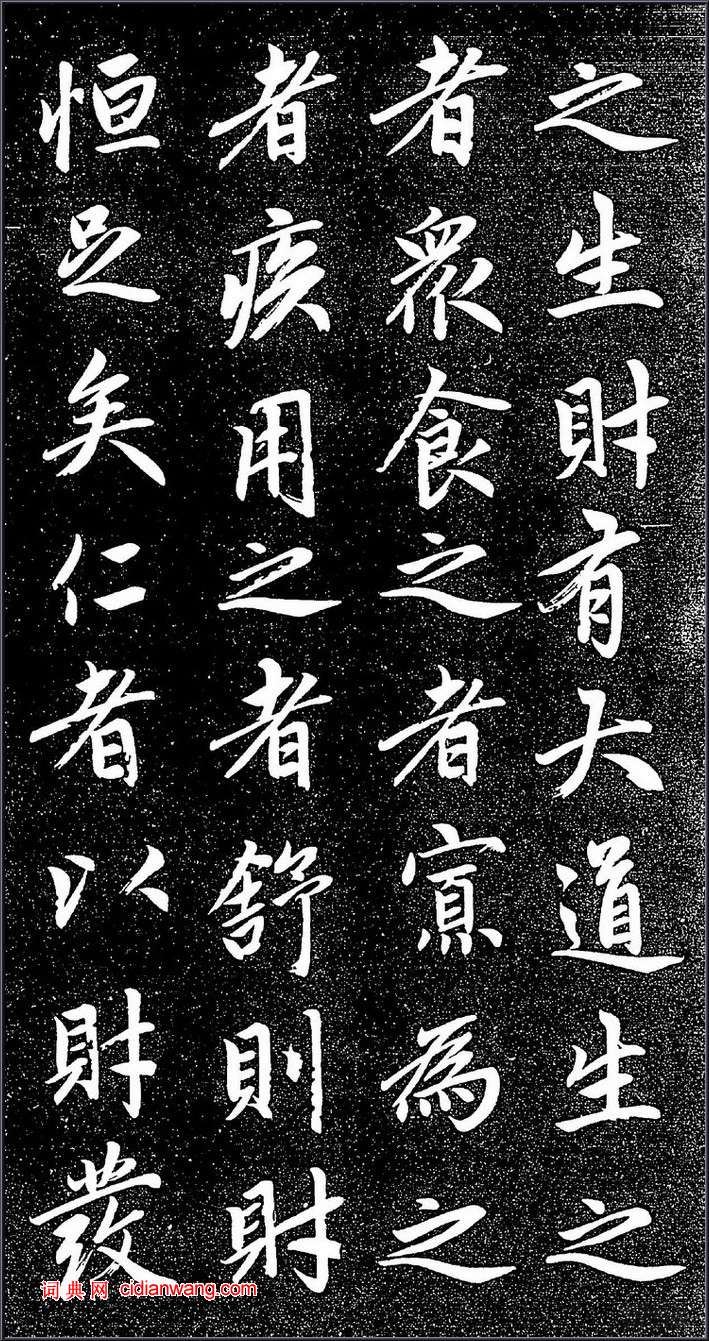 之生財有大道生之
者眾食之者寡為之
者疾用之者舒則財
恒足矣仁者以財發
词典网 cidianwang.com